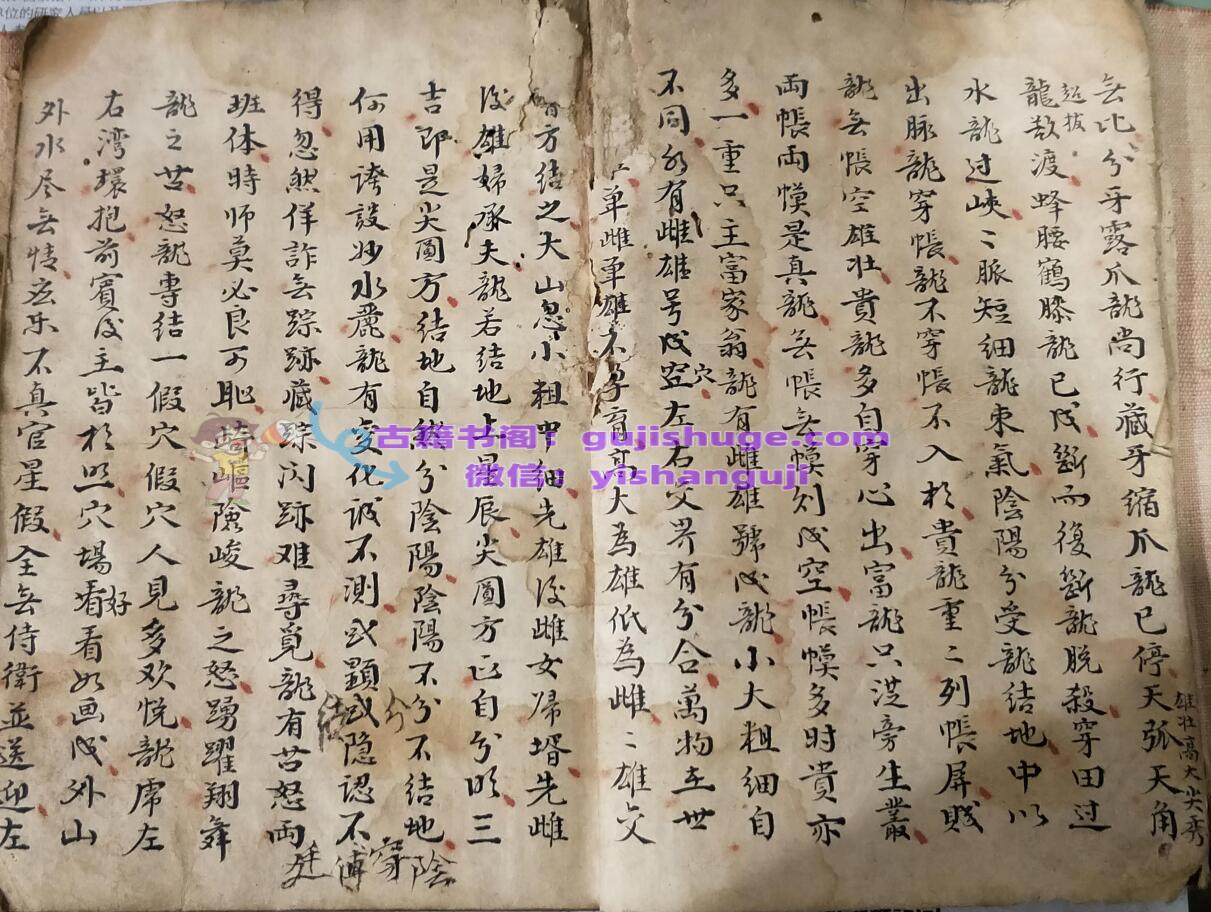 无比分牙露爪龍尚行藏牙缩爪龍已停天弧天角
雄壮高大尖秀
超拔
龍数渡蜂腰鶴膝龍已成斷而復斷龍脱殺穿田过
水龍过峽〻脈短细龍束氣陰陽分受龍结地中以
出脉龍穿帳龍不穿帳不入於貴龍重〻列帳屏賤
龍無帳空雄壮貴龍多自穿心出富龍只従旁生叢
両帳両幙是真龍無帳無幙则成空帳幙多时貴亦
多一重只主富家翁龍有雌雄號成龍小大粗细自
不同水有雌雄号成穴左右交界有分合萬物在世
单雌单雄不孕育高大為雄低為雌〻雄交
方结之大山忽小粗中细先雄後雌女帰壻先雌
後雄婦承夫龍若结地上星辰尖圓方正自分明三
吉即是尖圓方结地自然分陰陽陰陽不分不结地
何用誇設妙水麗龍有变化诚不測或顯或隐認不
得忽然佯詐無踪跡藏踪闪跡难尋覓龍有苦怒両
班休時师莫必良可耻崎嶇險峻龍之怒踴躍翔舞
龍之苦怒龍専结一假穴假穴人見多欢悦龍虎左
右湾環抱前賓後主皆於照穴場看好看如画成外山
外水尽無情玄乐不真官星假全無侍衛並送迎左
结
分
廷傅穿陰
古籍书阁：gujishuge.com
微信：yishanguji
位的研究人員以及